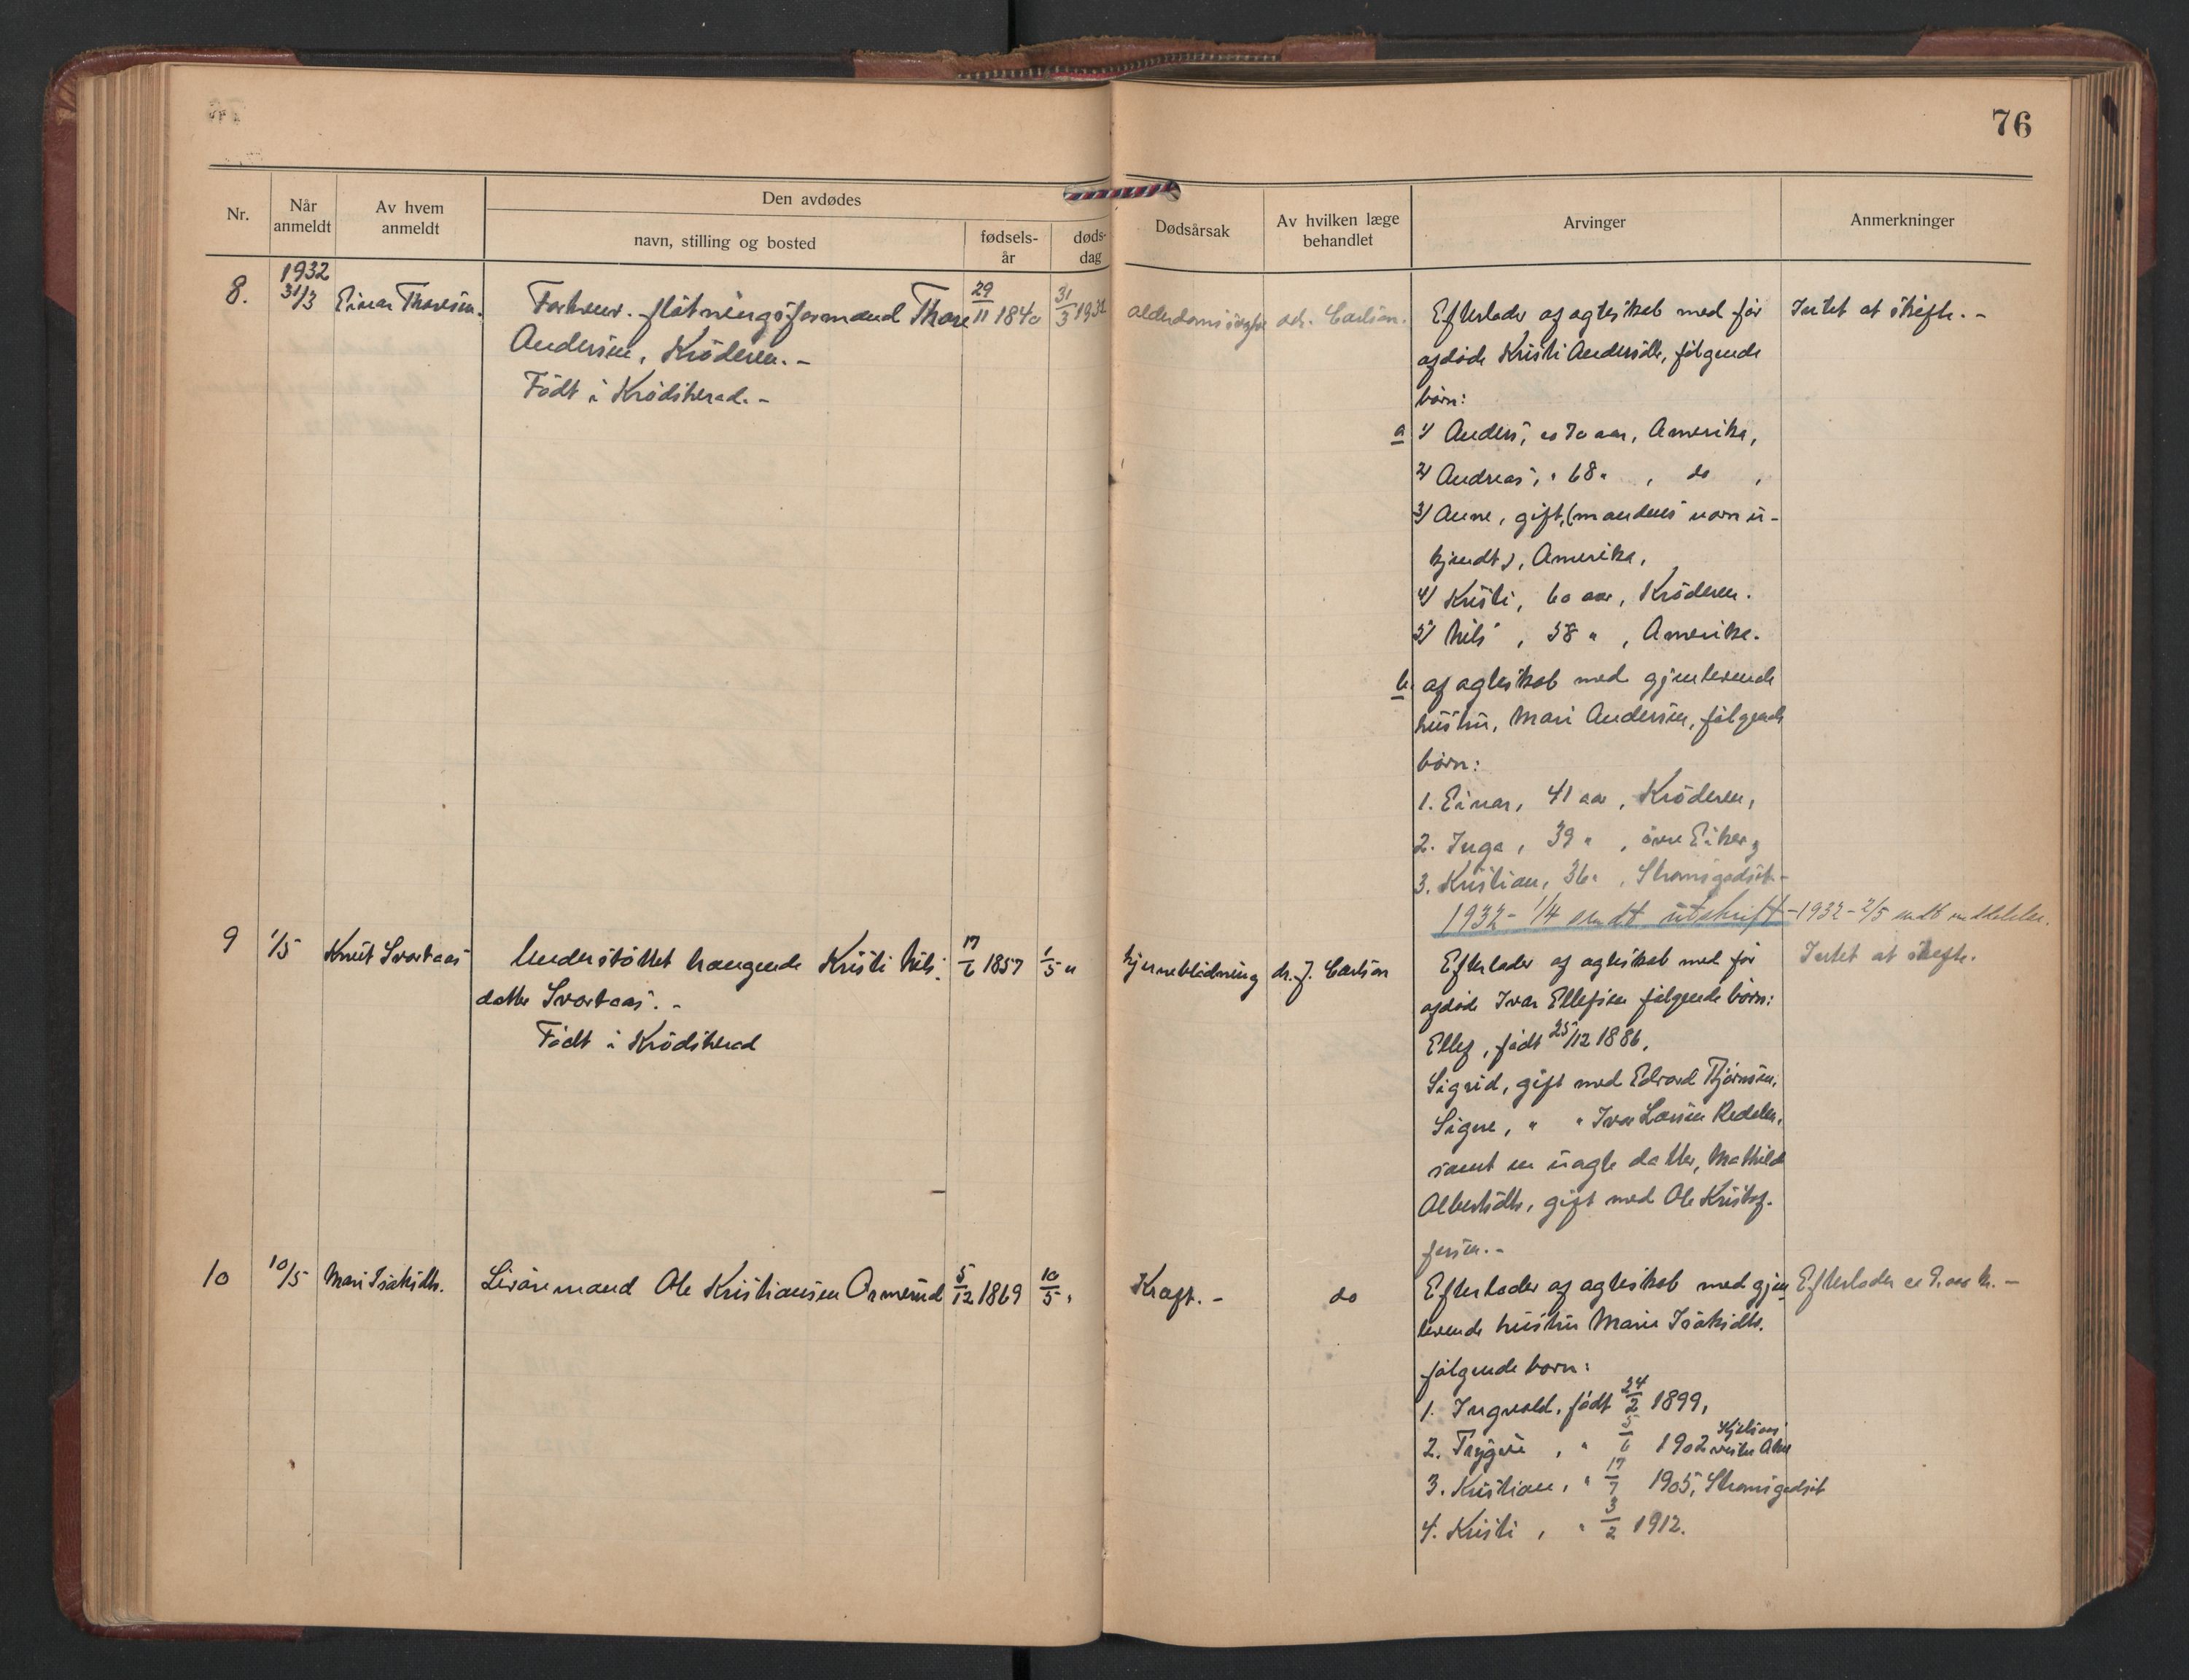 76
Nr.
Når anmeldt
Av hvem anmeldt
Den avdødes
navn, stilling og bosted
fødsels-år
døds-dag
Dødsårsak
Av hvilken læge behandlet
Arvinger
Anmerkninger
1932
8. 31/3 Einar Thoresen. Forhenv. fløtningsformand Thore 29/11 1840 31/3 1932
Andersen, Krøderen. -
Født i Krødsherad. -
alderdomssvaghet Carlson.
Efterlader af ægteskab med før
afdøde Kristi Andersdtr, følgende
børn:
a 1) Anders, ca 70 aar, Amerika,
2) Andreas, " 68 " , do ,
3) Anne, gift, (mandens navn u-
kjendt), Amerika,
4) Kristi, 60 aar, Krøderen.
5) Nils , 58 " , Amerika.
b. af ægteskab med gjenlevende
hustru, Mari Andersen, følgende
børn:
1. Einar, 41 aar, Krøderen,
2. Inga, 39 " , øvre Eiker,
3. Kristian, 36 " , Strømsgodset. -
1932 - 1/4 sendt utskrift -
Intet at skifte. -
1932 - 2/5 sendt meddelelse.
9 1/5 Knut Svartaas Understøttet trængende Kristi Nils-
datter Svartaas. -
Født i Krødsherad
17/6 1857 1/5 "
hjerneblødning dr. J. Carlson
Efterlader af ægteskab med før
afdøde Ivar Ellefsen følgende børn:
Ellef, født 25/12 1886.
Sigrid, gift med Edvard Bjørnsen,
Signe, " " Ivar Larsen Redalen,
samt en uægte datter, Mathilde
Albertsdtr, gift med Ole Kristof-
fersen. -
Intet at skifte.
10 10/5 Mari Isaksdtr. Livøremand Ole Kristiansen Ormerud 5/12 1869 10/5 "
Kræft. - do
Efterlader af ægteskab med gjen-
levende hustru Marie Isaksdtr.
følgende børn:
1. Ingvald, født 24/2 1899,
2. Trygve , " 5/6 1902 vestre Aker
3. Kristian, " 17/7 1905, Strømsgodset
4. Kristi , " 3/2 1912.
Efterlader